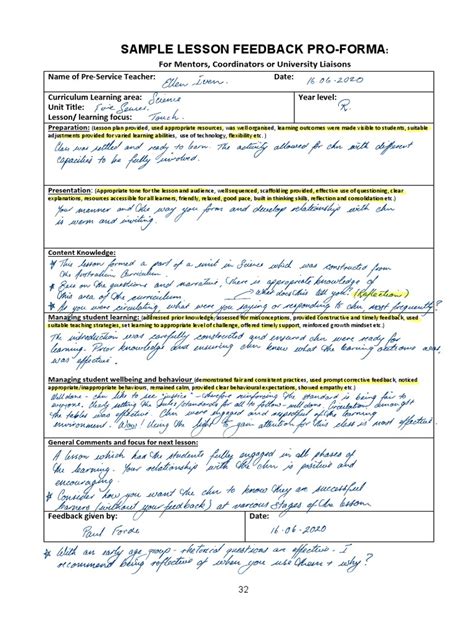 SAMPLE LESSON FEEDBACK PRO-FORMA:
For Mentors, Coordinators or University Liaisons
Name of Pre-Service Teacher: Ellen Date: 16-06-2020
Curriculum Learning area: Science Year level:
Unit Title: Five Senses. R.
Lesson/ learning focus: Touch.
Preparation: (Lesson plan provided, used appropriate resources, was well organised, learning outcomes were made visible to students, suitable
adjustments provided for varied learning abilities, use of technology, flexibility etc.)
Chn was settled and ready to learn. The activity allowed for chn with different
capacities to be fully involved.
Presentation: (Appropriate tone for the lesson and audience, well sequenced, scaffolding provided, effective use of questioning, clear
explanations, resources accessible for all learners, friendly, relaxed, good pace, built in thinking skills, reflection and consolidation etc.)
Your manner and the way you form and develop relationship with chn
is warm and inviting.
Content Knowledge:
* This lesson formed a part of a unit in Science which was constructed from
the Australian Curriculum.
* Base on the questions and narrative, there is appropriate knowledge of
this area of the curriculum. what does this tell you? (Reflection)
* As you were circulating, what were you saying or responding to chn most frequently?
Managing student learning: (addressed prior knowledge, assessed for misconceptions, provided constructive and timely feedback, used
suitable teaching strategies, set learning to appropriate level of challenge, offered timely support, reinforced growth mindset etc.)
The introduction was carefully constructed and ensured chn were ready for
learning. Prior knowledge and ensuring chn knew what the learning outcomes were
was effective.
Managing student wellbeing and behaviour (demonstrated fair and consistent practices, used prompt corrective feedback, noticed
appropriate/inappropriate behaviours, remained calm, provided clear behavioural expectations, showed empathy etc.)
Well done - chn like to see "justice" - therefore reinforcing the standard is being fair to
everyone. Clearly setting the rules/standards for all to follow - well done. Circulation amongst
the tables was effective. Chn were engaged and respectful of the learning
environment. Wow! Using the light to gain attention for this class is most effective.
General Comments and focus for next lesson:
A lesson which had the students fully engaged in all phases of
the learning. Your relationship with the chn is positive and
encouraging.
* Consider how you want the chn to know they are successful
learners (without your feedback) at various stages of the lesson.
Feedback given by: Date:
Paul Forde 16-06-2020
* With an early age group - rhetorical questions are effective. I
recommend being reflective of when you use them + why?
32